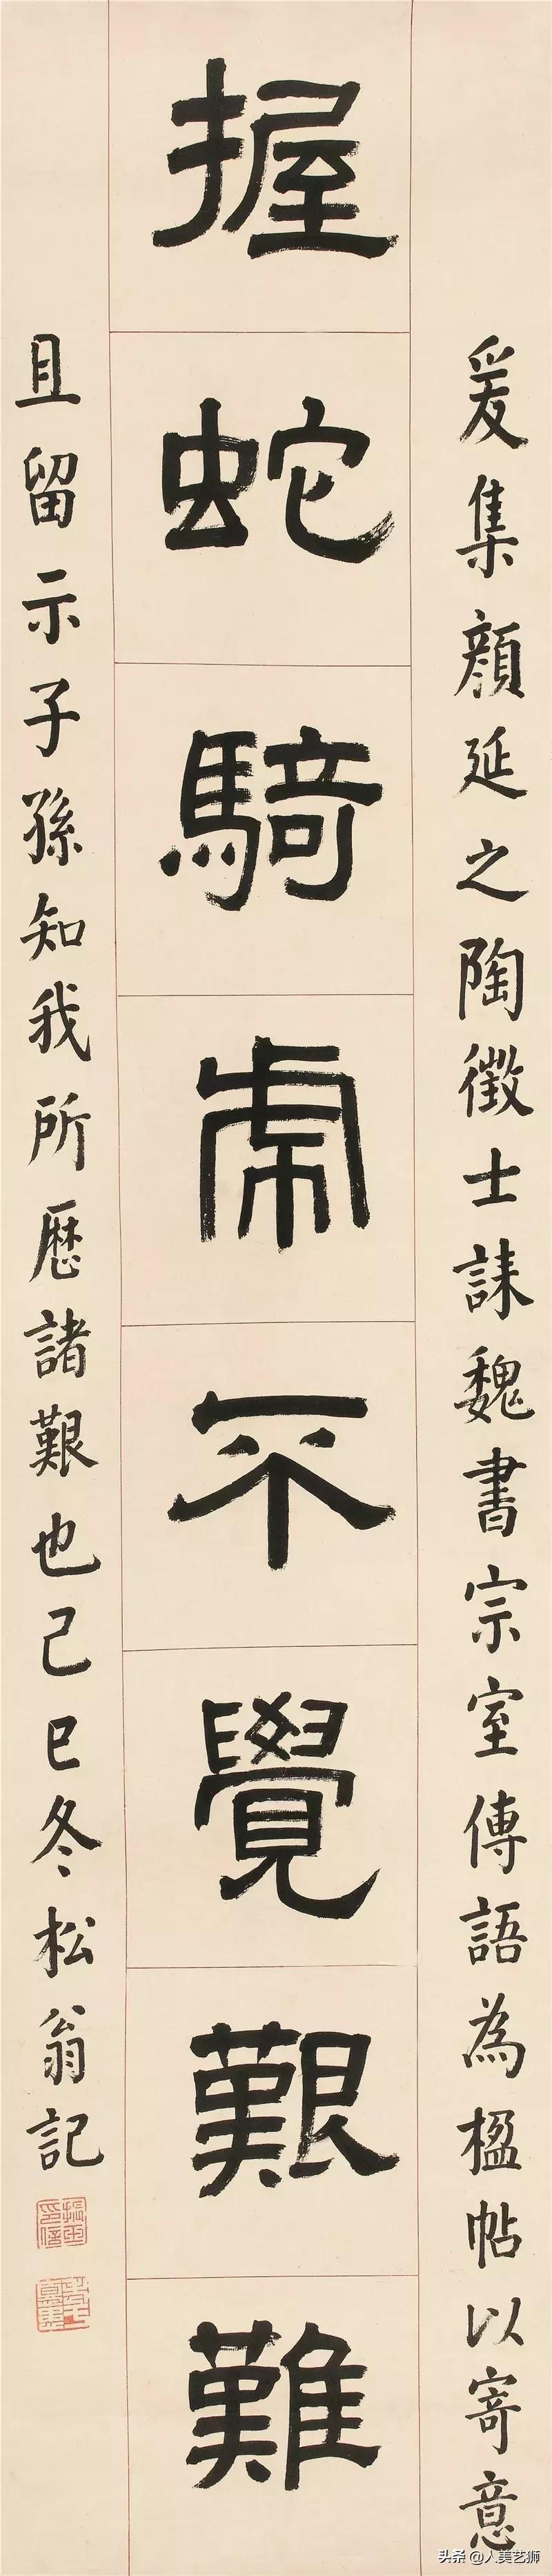 握蛇騎虎不覺艱難
爰集顏延之陶徵士誄魏書宗室傳語為楹帖以寄意
且留示子孫知我所歷諸艱也己巳冬松翁記
头条 @人美艺狮